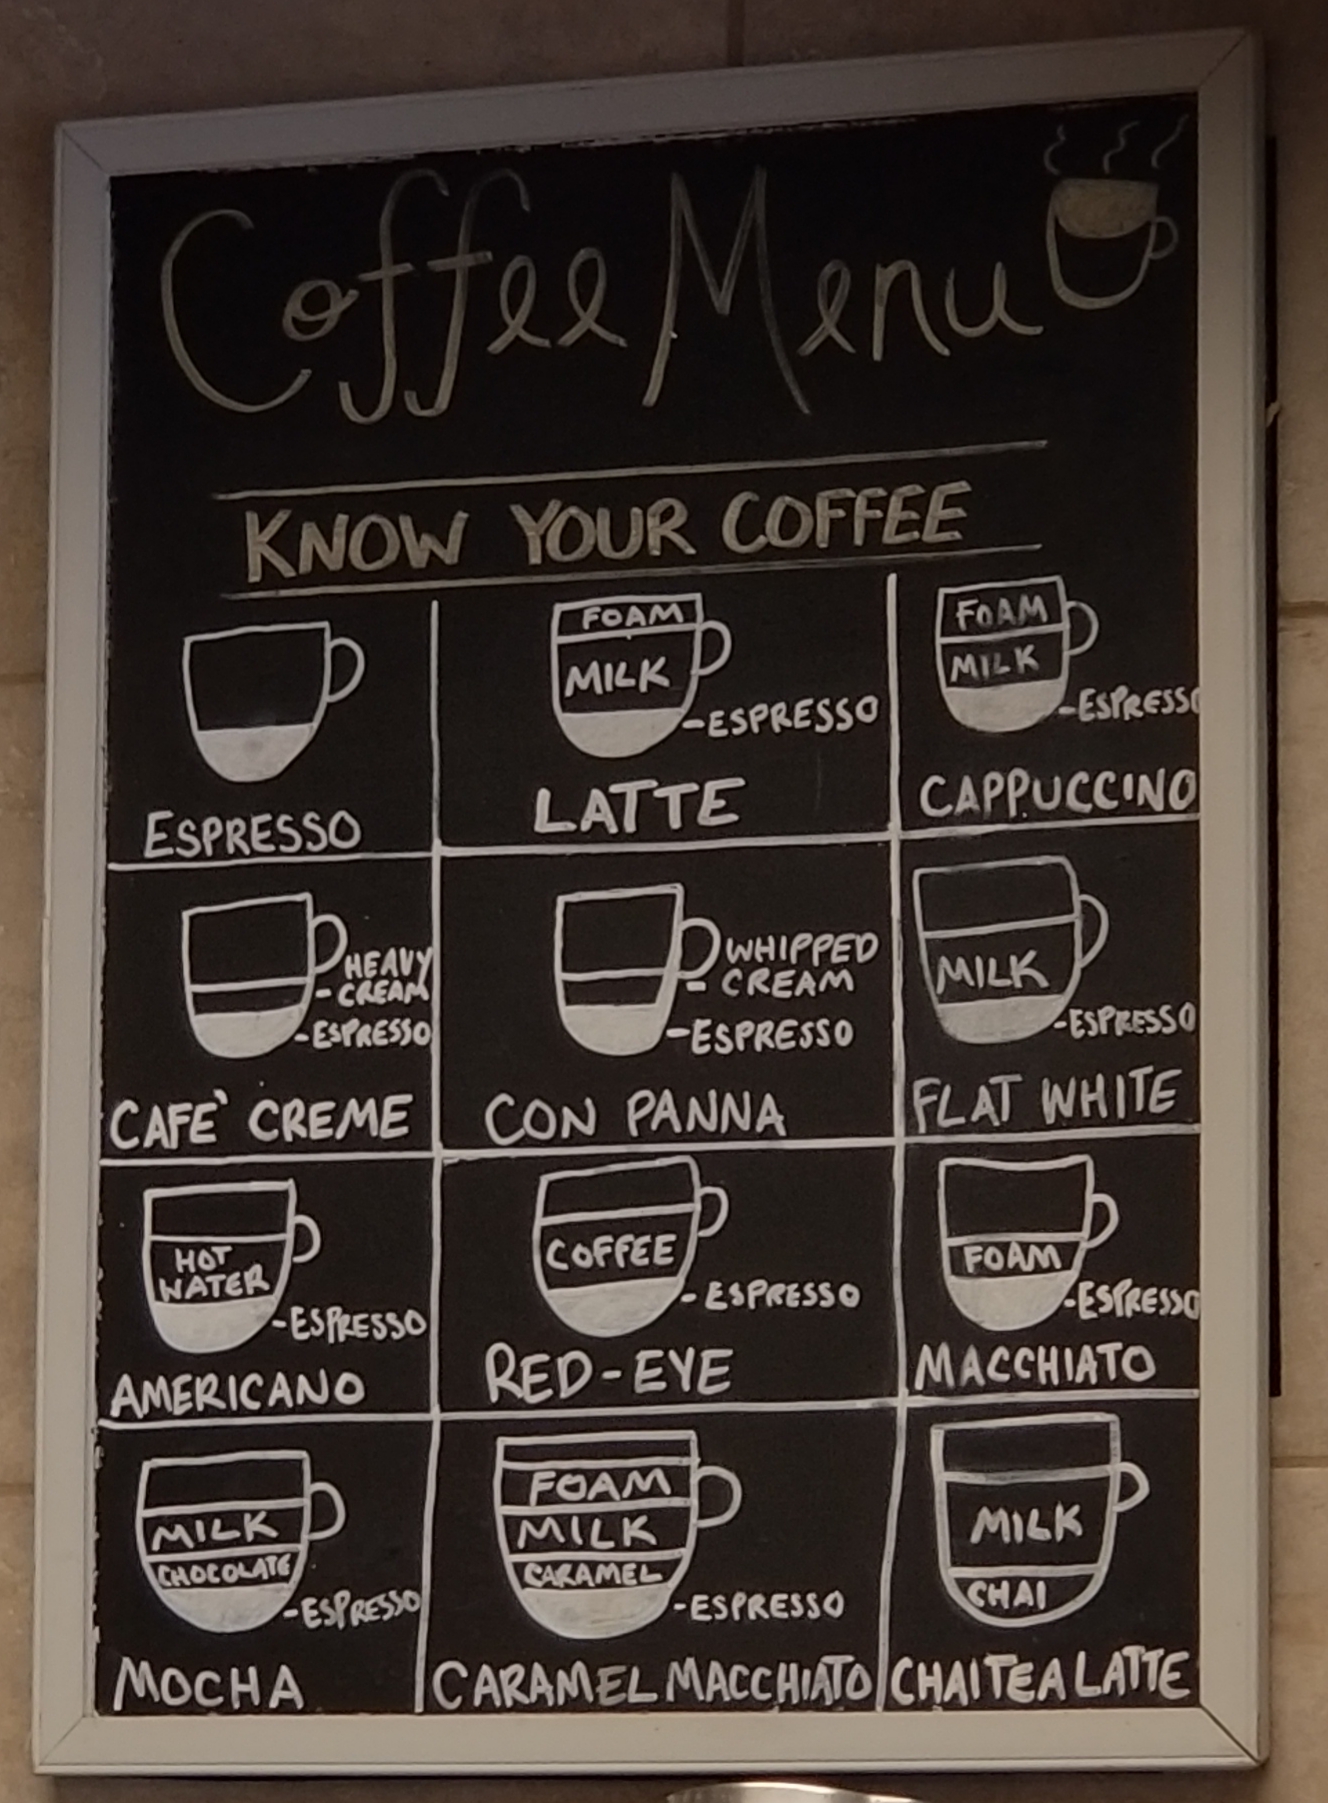 Coffee Menu
KNOW YOUR COFFEE
ESPRESSO
FOAM
MILK
-ESPRESSO
LATTE
FOAM
MILK
-ESPRESSO
CAPPUCCINO
HEAVY
-CREAM
-ESPRESSO
CAFE` CREME
WHIPPED
- CREAM
-ESPRESSO
CON PANNA
MILK
-ESPRESSO
FLAT WHITE
HOT
WATER
-ESPRESSO
AMERICANO
COFFEE
- ESPRESSO
RED-EYE
FOAM
-ESPRESSO
MACCHIATO
MILK
CHOCOLATE
-ESPRESSO
MOCHA
FOAM
MILK
CARAMEL
-ESPRESSO
CARAMEL MACCHIATO
MILK
CHAI
CHAI TEA LATTE